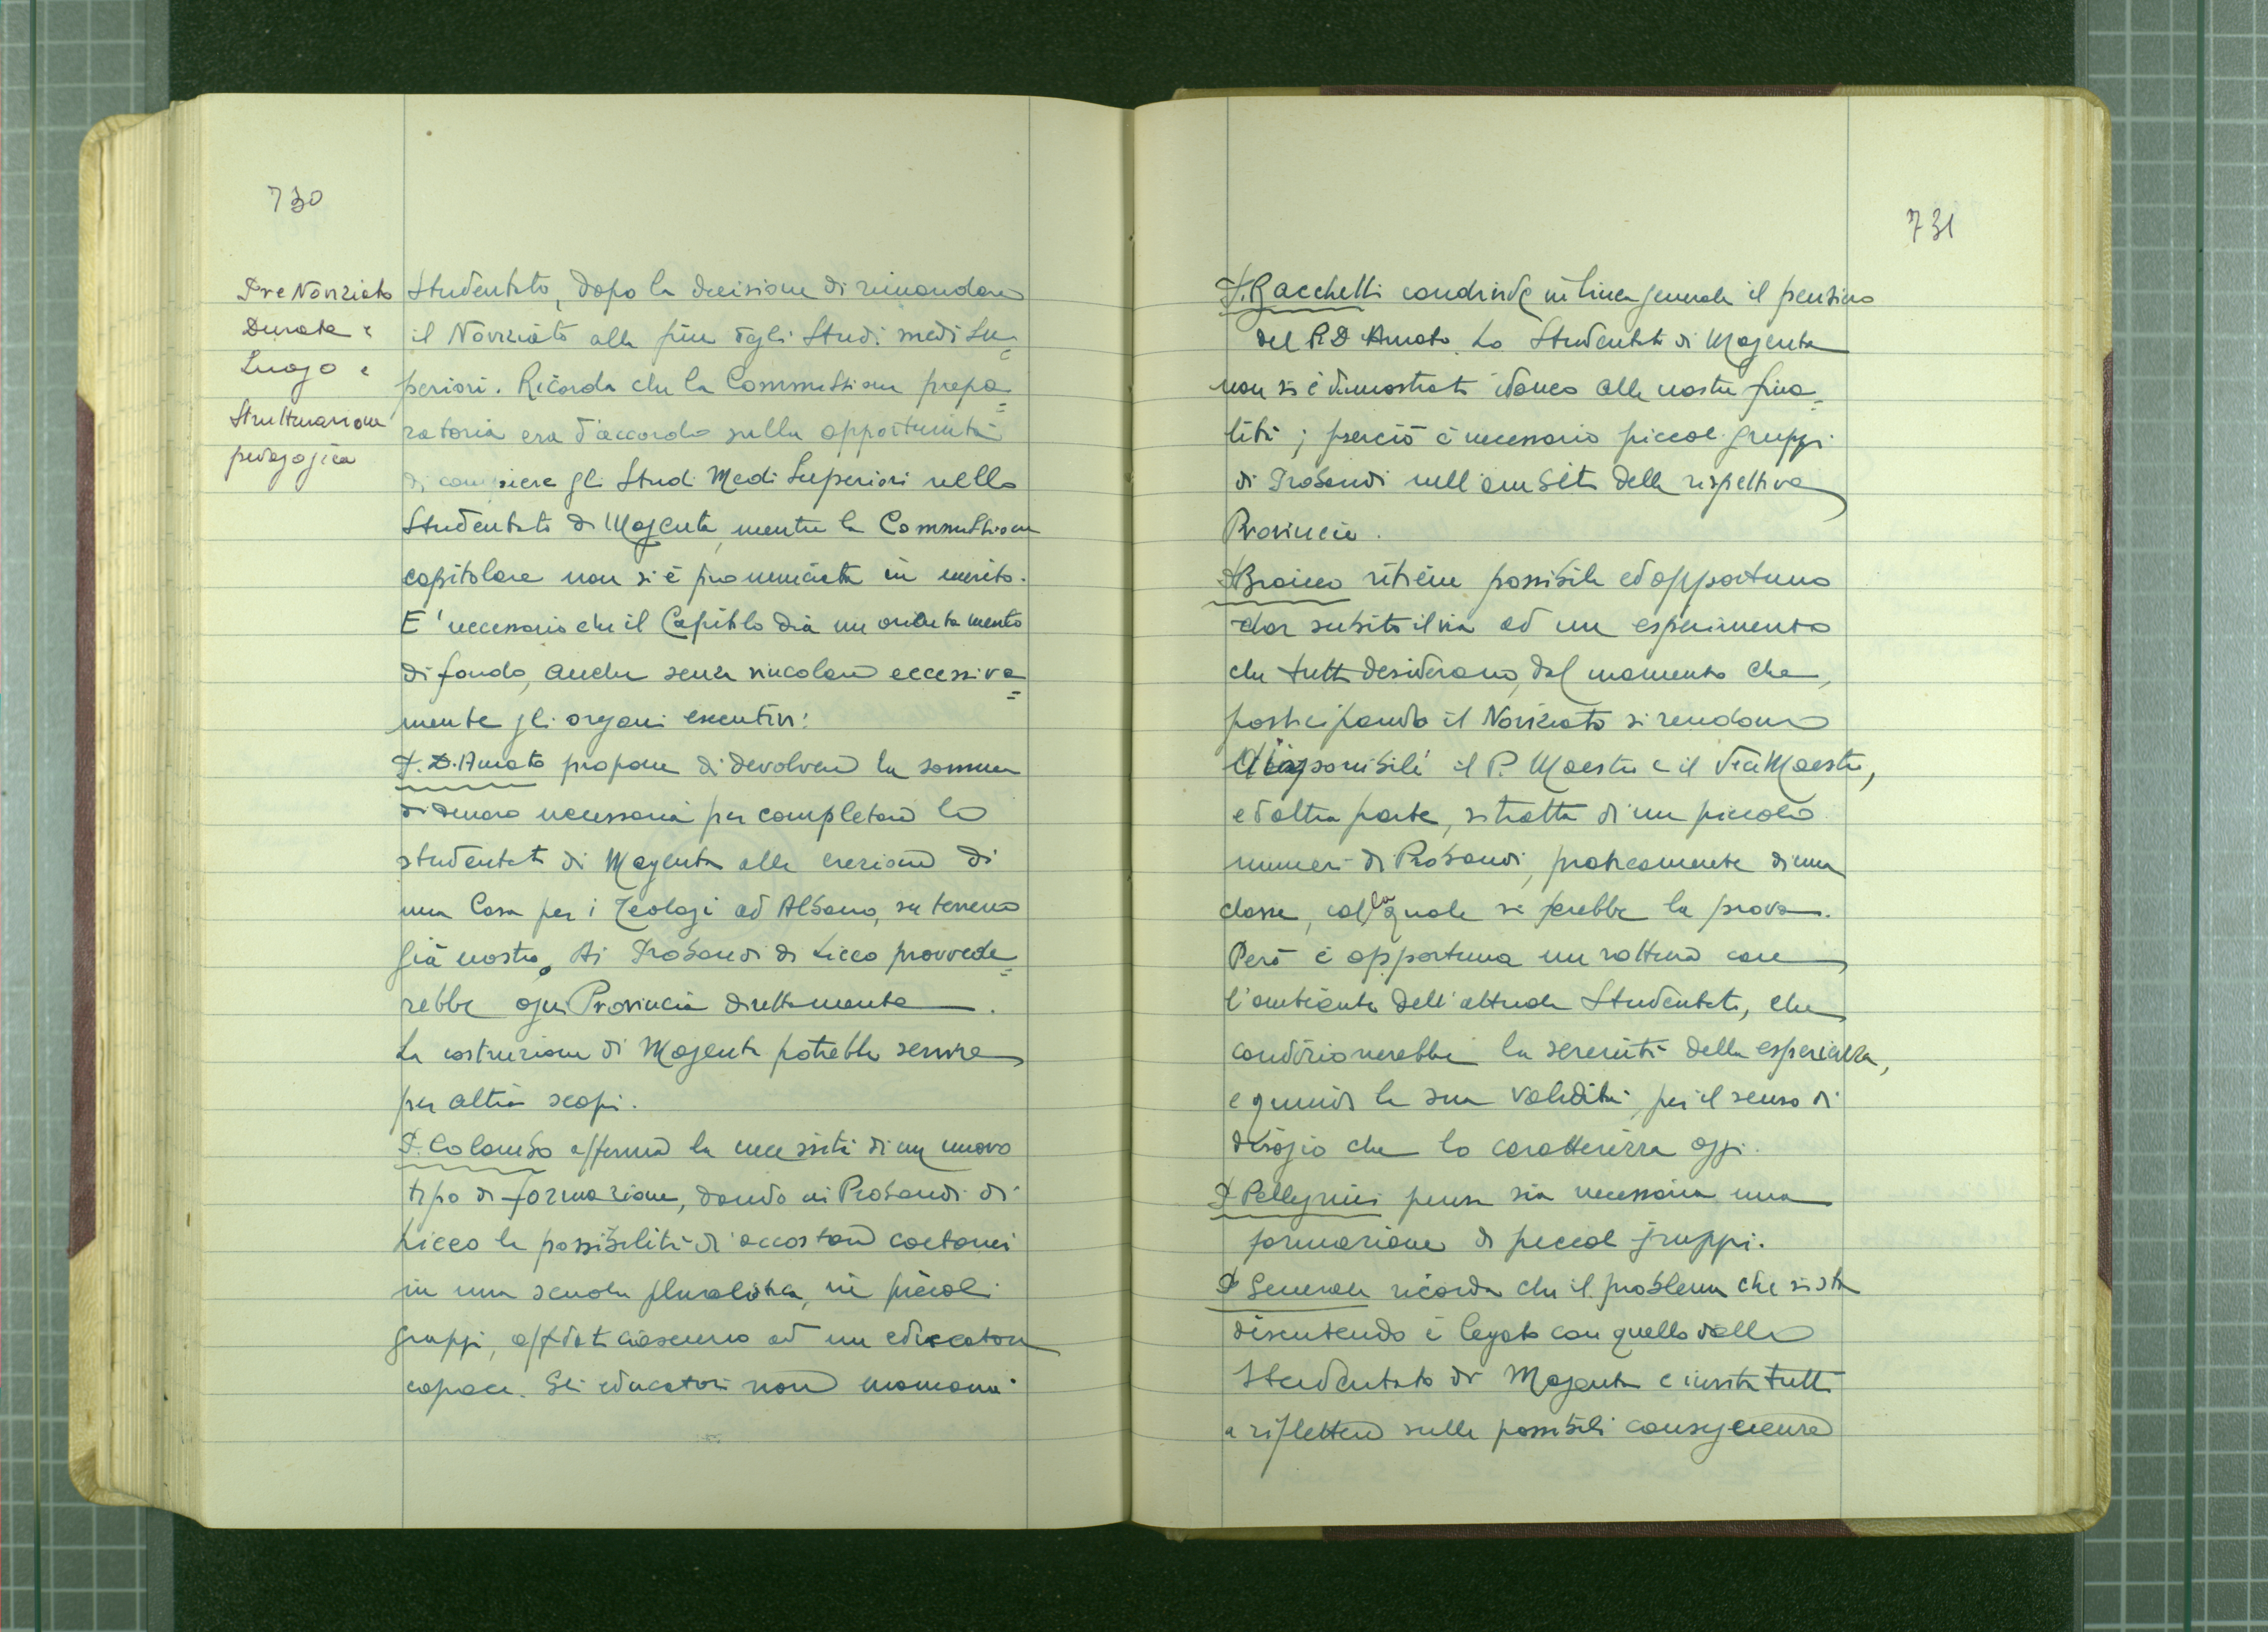 730
Pre Noviziato
Durata e
Luogo e
Strutturazione
pedagogica
Studentato, dopo la decisione di rimandare
il Noviziato alla fine degli Studi medi Su=
periori. Ricorda che la Commissione prepa=
ratoria era d'accordo sulla opportunità
di compiere gli Studi Medi Superiori nello
Studentato di Magenta, mentre la Commissione
capitolare non si è pronunciata in merito.
E' necessario che il Capitolo dia un orientamento
di fondo, anche senza vincolare eccessiva=
mente gli organi esecutivi.
P. D'Amato propone di devolvere la somma
di denaro necessaria per completare lo
studentato di Magenta alla erezione di
una Casa per i Teologi ad Albano, su terreno
già nostro. Ai Probandi di Liceo provvede=
rebbe ogni Provincia direttamente.
La costruzione di Magenta potrebbe servire
per altri scopi.
P. Colombo afferma la necessità di un nuovo
tipo di formazione, dando ai Probandi di
Liceo la possibilità di accostare coetanei
in una scuola pluralistica, in piccoli
gruppi, affidati ciascuno ad un educatore
capace. Gli educatori non mancano.
731
P. Bacchetti condivide in linea generale il pensiero
del P. D'Amato. Lo Studentato di Magenta
non si è dimostrato idoneo alle nostre fina=
lità; perciò è necessario piccoli gruppi
di Probandi nell'ambito della rispettiva
Provincia.
P Braico ritiene possibile ed opportuno
dar subito il via ad un esperimento
che tutti desiderano, dal momento che,
posticipando il Noviziato si rendono
disponibili il P. Maestro e il Vice Maestro,
e d'altra parte, si tratta di un piccolo
numero di Probandi, praticamente di una
classe, colla quale si farebbe la prova.
Però è opportuna una rottura con
l'ambiente dell'attuale Studentato, che
condizionerebbe la serenità della esperienza,
e quindi la sua validità, per il senso di
disagio che lo caratterizza oggi.
P Pellegrini pensa sia necessaria una
formazione di piccoli gruppi.
P Generale ricorda che il problema che si sta
discutendo è legato con quello dello
Studentato di Magenta e invita tutti
a riflettere sulle possibili conseguenze